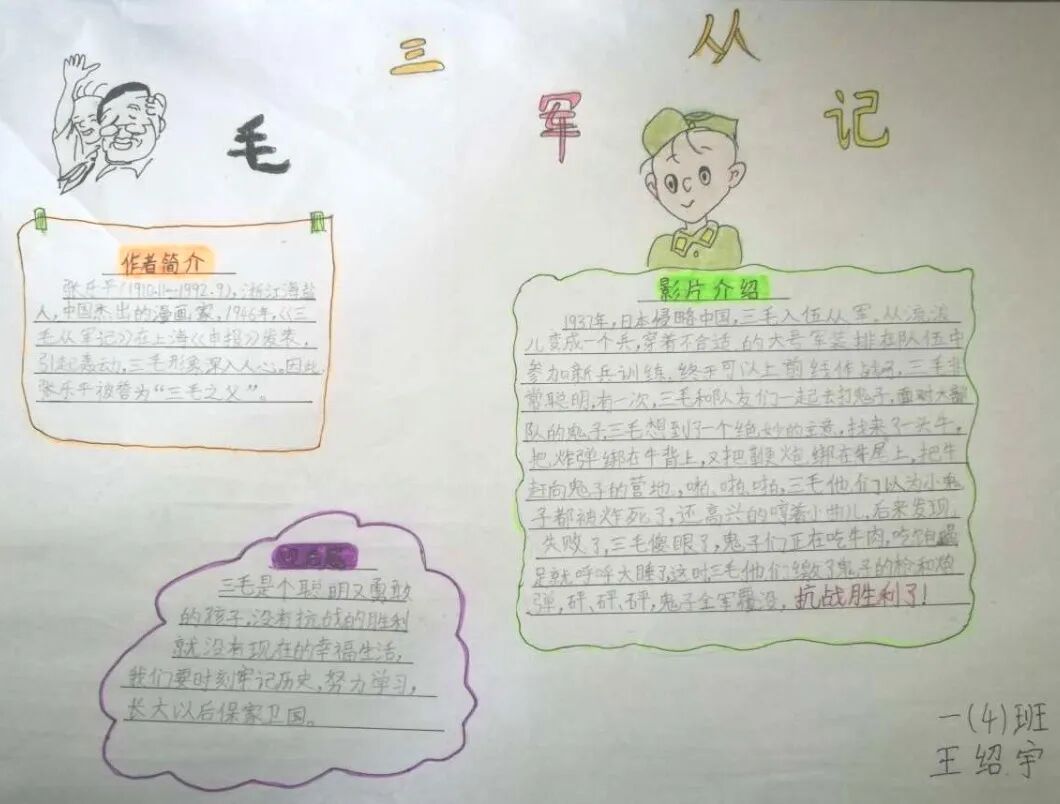 三
毛
从
军
记
作者简介
张乐平(1910.11-1992.9),浙江海盐
人,中国杰出的漫画家,1946年,《三
毛从军记》在上海《申报》发表,
引起轰动,三毛形象深入人心。因此,
张乐平被誉为“三毛之父”。
影片介绍
1937年,日本侵略中国,三毛入伍从军。从流浪
儿变成一个兵,穿着不合适的大号军装排在队伍中
参加新兵训练,终于可以上前线作战了,三毛非
常聪明,有一次,三毛和队友们一起去打鬼子,面对大部
队的鬼子,三毛想到了一个绝妙的主意,找来了一头牛,
把炸弹绑在牛背上,又把鞭炮绑在牛尾上,把牛
赶向鬼子的营地,啪、啪、啪,三毛他们以为小鬼
子都被炸死了,还高兴的哼着小曲儿,后来发现,
失败了,三毛傻眼了,鬼子们正在吃牛肉,吃饱喝
足就呼呼大睡了,这时三毛他们缴了鬼子的枪和炮
弹,砰、砰、砰,鬼子全军覆没,抗战胜利了!
观后感
三毛是个聪明又勇敢
的孩子,没有抗战的胜利
就没有现在的幸福生活,
我们要时刻牢记历史,努力学习,
长大以后保家卫国。
一(4)班
王绍宇